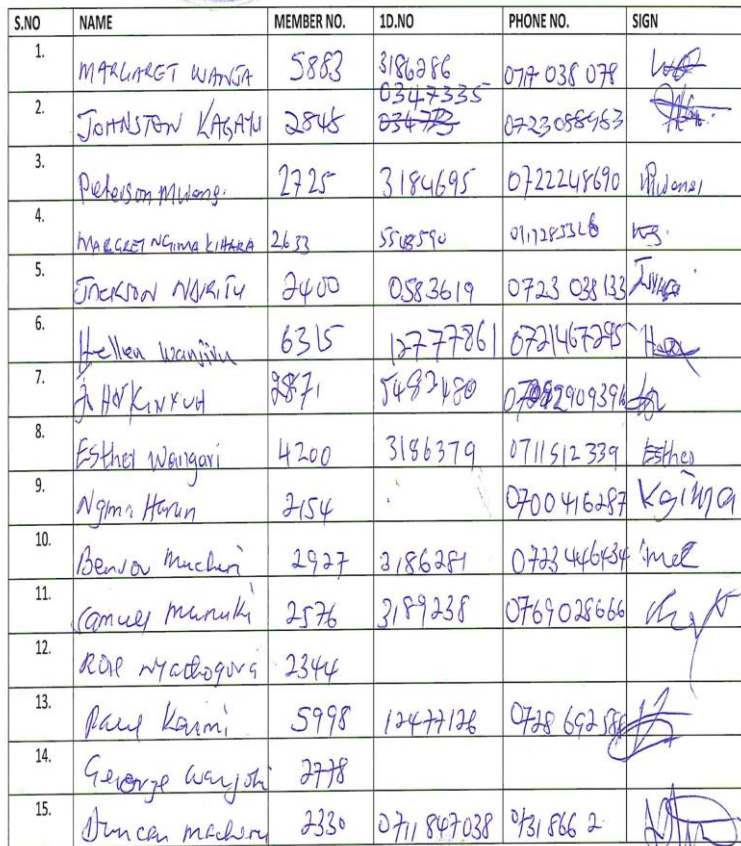 S.NO NAME MEMBER NO. 1D.NO PHONE NO. SIGN
1. MARGARET WANJA 5883 3186286 0717 038 079
2. JOHNSTON KAGAYU 2845 0347335 0723088453
3. Peterson Mwangi. 2725 3184695 0722248690 Mwangi
4. MARGRET NGIMA KIHARA 2633 5568590
5. JACKSON NDIRITU 2400 0583619 0723 038 133
6. Hellen Wanjiru 6315 12777861 0721467295
7. JOHN KINYUA 2871 5482480
8. Esther Wangari 4200 3186379 0711512339 Esther
9. Ngima Harun 2154 0700416287 Kgima
10. Benson Muchiri 2927 3186281 0723446434
11. Samuel Munuhi 2576 3189238 0769028666
12. Rose Nyachogura 2344
13. Paul Karimi 5998 12477126 0728 692586
14. George Wanjohi 2778
15. Duncan Macharu 2330 0711 847038 0731866 2